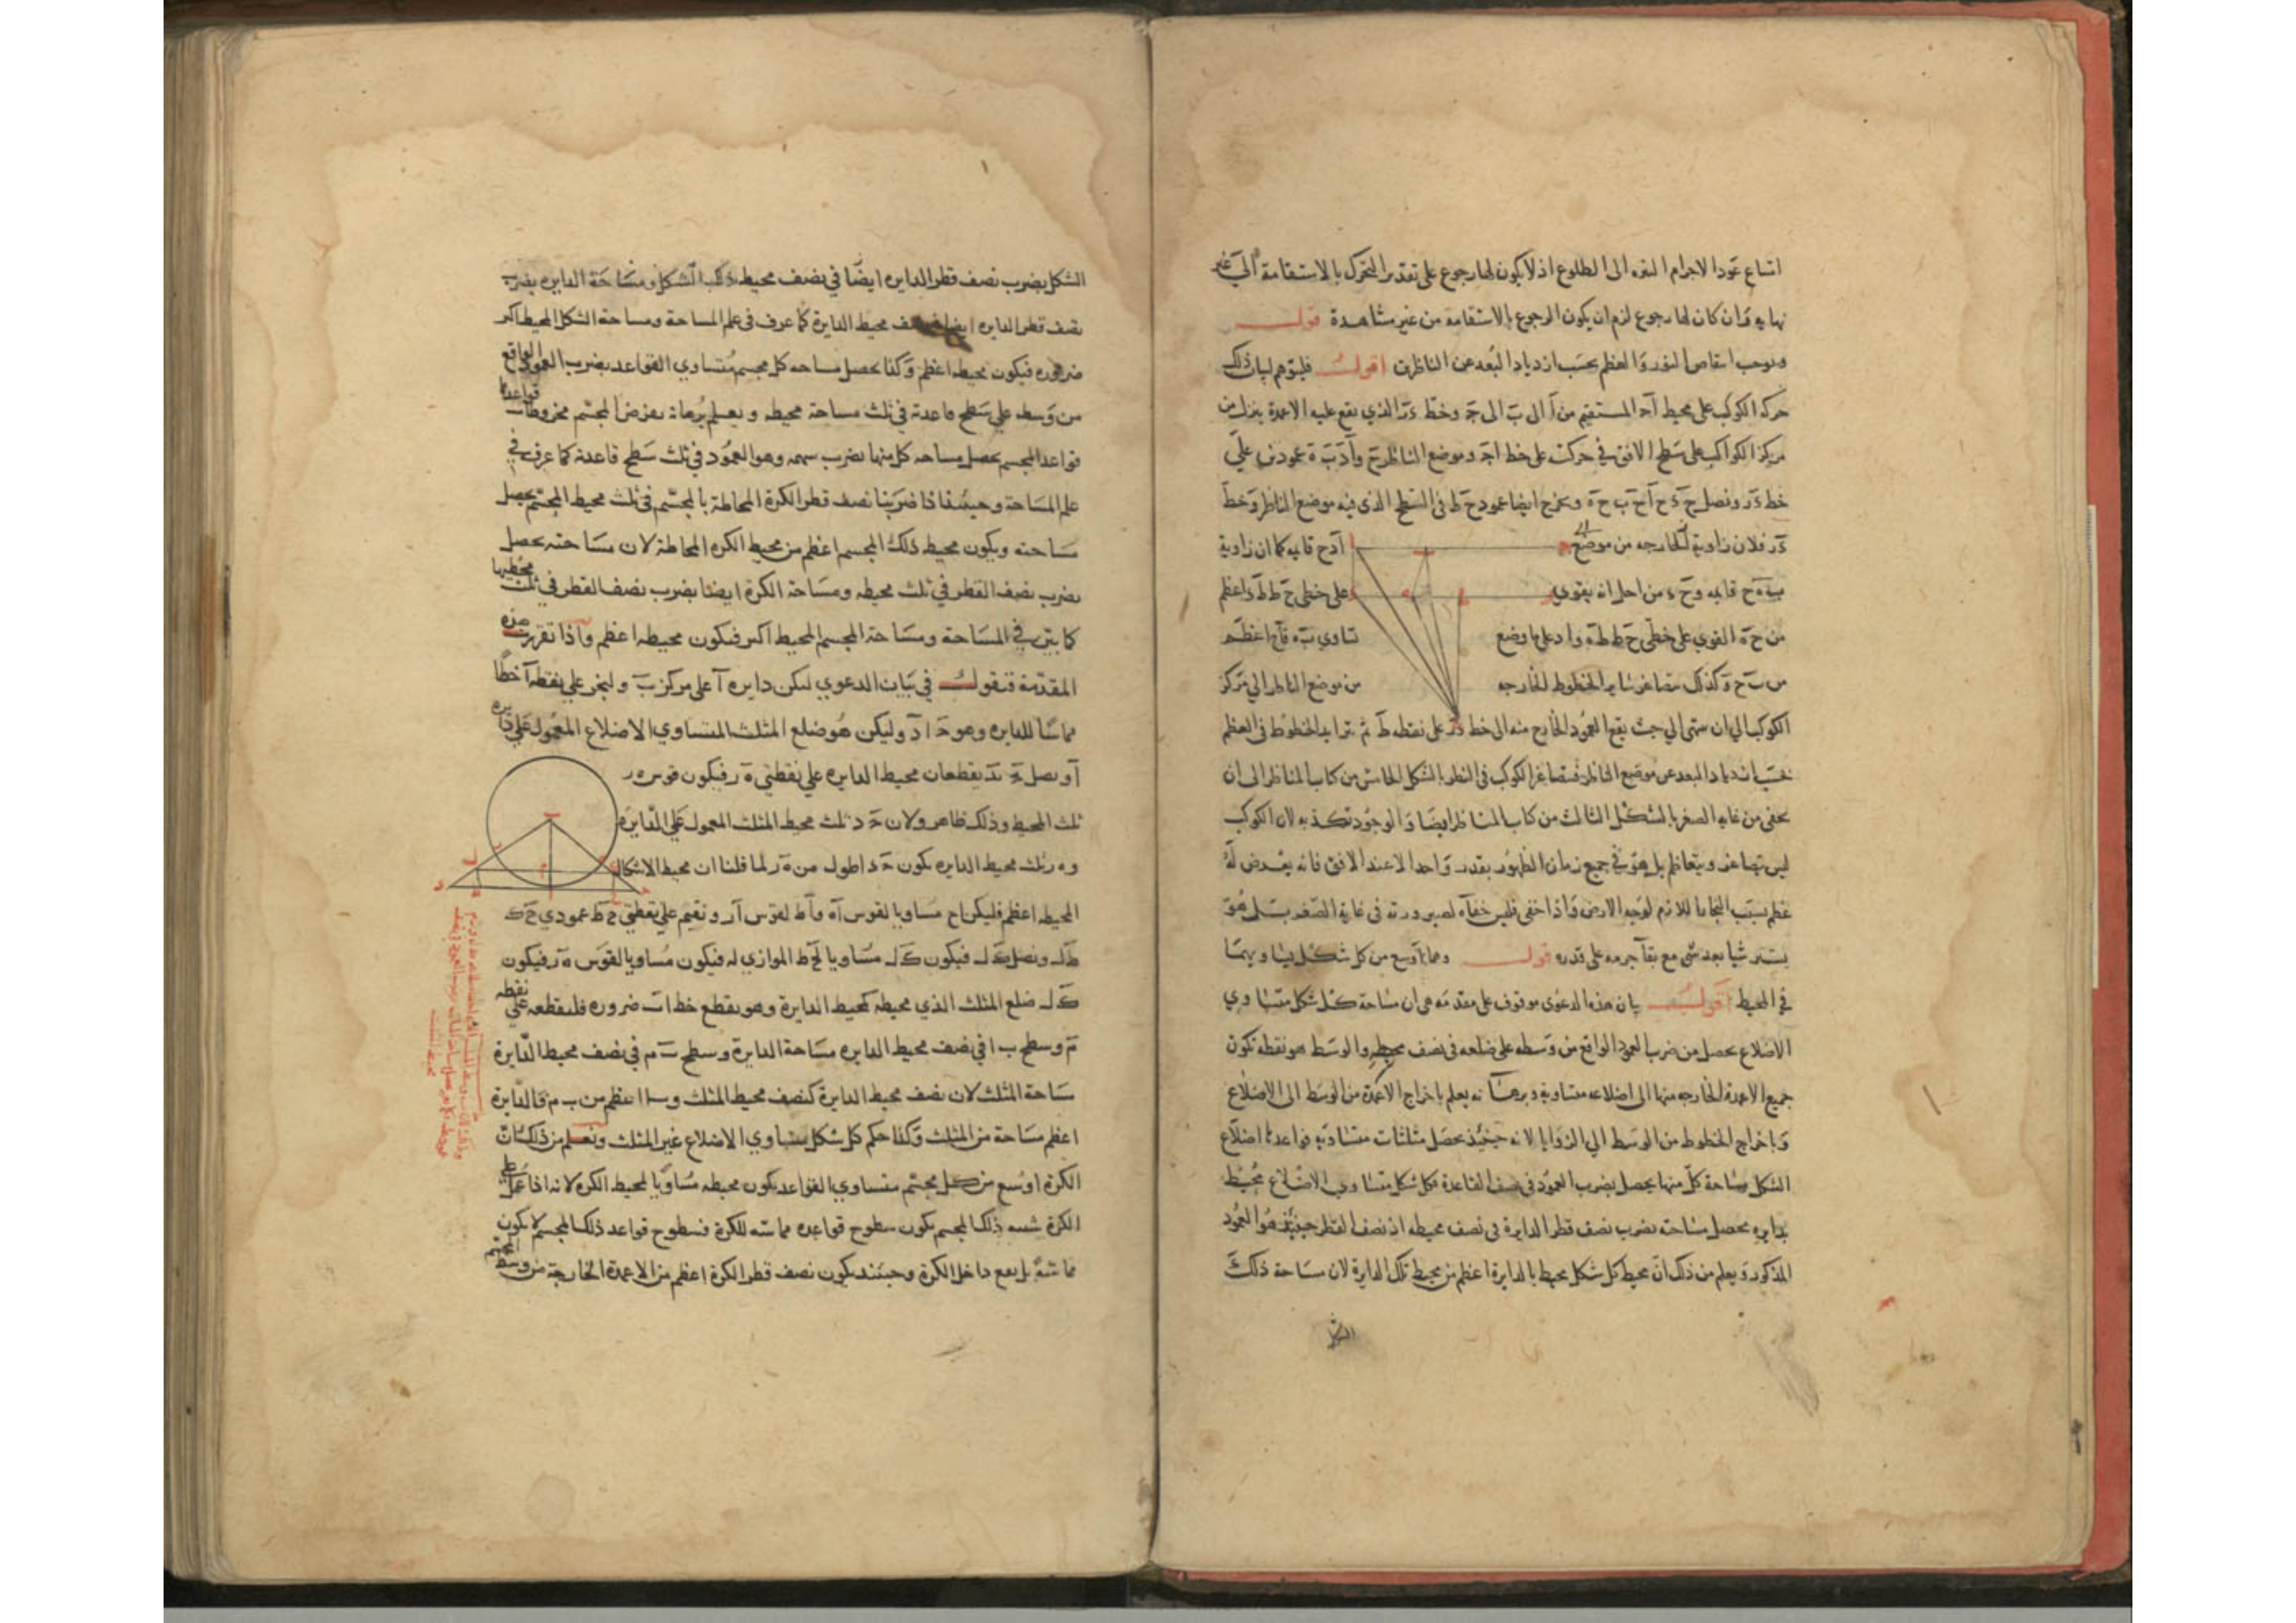 اتساع عود الاجرام النيره الى الطلوع اذ لا يكون لها رجوع على تقدير التحرك بالاستقامة الى غير
نهايه وان كان لها رجوع لزم ان يكون الرجوع بالاستقامة من غير مشاهدة قوله
ويوجب انتقاص النور والعظم بحسب ازدياد البعد عن الناظرين اقول فليتوهم لبيان ذلك
حركه الكوكب على محيط اج المستقيم من آ الى ب الى ج وخط در الذي يقع عليه الاعمدة بنزل من
مركز الكواكب على سطح الافق في حركته على خط اج وموضع الناظر ح وآد ب ه عمودين على
خط در ونصل ح د ح آ ح ب ح ه ونخرج ايضا عمود ح ط فى السطح الذى فيه موضع الناظر وخط
در فلان زاوية الخارجه من موضع ادح قايمه كما ان زاوية
ب ه ح قايمه وح د من اجل انه يقوي على خطى ح ط ط د اعظم
من ح ه القوي على خطى ح ط ط ه واد على ما وضع تساوي ب ه فاح اعظم
من ب ح وكذلك يتصاغر ساير الخطوط الخارجه من موضع الناظر الى مركز
الكوكب الى ان ينتهى الى حيث يقع العمود الخارج منه الى خط در على نقطه ط ثم تتزايد الخطوط فى العظم
بحسب ازدياد البعد عن موضع الناظر فيتصاغر الكوكب فى النظر بالشكل الخامس من كتاب المناظر الى ان
يخفى من غايه الصغر بالشكل الثالث من كتاب المناظر ايضا والوجود تكذبه لان الكوكب
ليس يتصاغر ويتعاظم بل هو في جميع زمان الظهور بقدر واحد الا عند الافق فانه يعرض له
عظم بسبب البخار اللازم لوجه الارض واذا خفى فليس خفآه لصيرورته فى غاية الصغر بل هو
يستتر شيا بعد شى مع بقآ جرمه على قدره قوله وهما اوسع من كل شكل يساويهما
في المحيط اقول بيان هذه الدعوى موقوف على مقدمه هى ان مساحة كل شكل متساوي
الاضلاع يحصل من ضرب العمود الواقع من وسطه على ضلعه فى نصف محيطه والوسط هو نقطه تكون
جميع الاعمدة الخارجه منها الى اضلاعه متساوية وبرهانه يعلم باخراج الاعمدة من الوسط الى الاضلاع
وباخراج الخطوط من الوسط الى الزوايا لانه حينئذ يحصل مثلثات متساوية قواعدها اضلاع
الشكل ومساحة كل منها يحصل بضرب العمود فى نصف القاعدة فكل شكل متساوي الاضلاع محيط
بدايره يحصل مساحته بضرب نصف قطر الدايرة فى نصف محيطه اذ نصف القطر حينئذ هو العمود
المذكور ويعلم من ذلك ان محيط كل شكل محيط بالدايرة اعظم من محيط تلك الدايرة لان مساحة ذلك
الشكل
الشكل بضرب نصف قطر الدايره ايضا في نصف محيط ذلك الشكل ومساحة الدايره بضرب
نصف قطر الدايره ايضا فى نصف محيط الدايرة كما عرف فى علم المساحة ومساحة الشكل المحيط اكبر
ضروره فيكون محيطه اعظم وكذا يحصل مساحه كل مجسم متساوي القواعد بضرب العمود الواقع
من وسطه على سطح قاعدته في ثلث مساحة محيطه ويعلم برهانه بفرض المجسم مخروطات قواعدها
قواعد المجسم يحصل مساحه كل منها بضرب سهمه وهو العمود فى ثلث سطح قاعدته كما عرف في
علم المساحة وحينئذ فاذا ضربنا نصف قطر الكرة المحاطة بالمجسم فى ثلث محيط المجسم يحصل
مساحته ويكون محيط ذلك المجسم اعظم من محيط الكره المحاطة لان مساحته يحصل
بضرب نصف القطر في ثلث محيطه ومساحة الكرة ايضا بضرب نصف القطر في ثلث محيطها
كما بين في المساحة ومساحة المجسم المحيط اكبر فيكون محيطه اعظم واذا تقررت هذه
المقدمة فنقول في بيان الدعوي لتكن دايره آ على مركز ب وليخر على نقطه آ خطا
مماسا للدايره وهو ج ا د وليكن هو ضلع المثلث المتساوي الاضلاع المعمول على دايره
آ ونصل ب ج ب د يقطعان محيط الدايره على نقطتي ه ر فيكون قوس ه ر
ثلث المحيط وذلك ظاهر ولان ج د ثلث محيط المثلث المعمول على الدايره
و ه ر ثلث محيط الدايره يكون ج د اطول من ه ر لما قلنا ان محيط الاشكال
المحيطه اعظم فليكن اح مساويا لقوس آه وآط لقوس آر ونقيم على نقطتي ح ط عمودي ح ك
ط ل ونصل ك ل فيكون ك ل مساويا لح ط الموازي له فيكون مساويا لقوس ه ر فيكون
ك ل ضلع المثلث الذي محيطه كمحيط الدايرة وهو يقطع خط اب ضروره فليقطعه على نقطه
م وسطح ب ا في نصف محيط الدايره مساحة الدايرة وسطح ب م في نصف محيط الدايرة
مساحة المثلث لان نصف محيط الدايرة كنصف محيط المثلث وب ا اعظم من ب م فالدايرة
اعظم مساحة من المثلث وكذا حكم كل شكل متساوي الاضلاع غير المثلث ونعلم من ذلك ان
الكرة اوسع من كل مجسم متساوي القواعد يكون محيطه مساويا لمحيط الكره لانه اذا عمل على
الكرة شبيه ذلك المجسم يكون سطوح قواعده مماسه للكرة فسطوح قواعد ذلك المجسم لا يكون
مماسة بل يقع داخل الكرة وحينئذ يكون نصف قطر الكرة اعظم من الاعمدة الخارجة من وسط المجسم